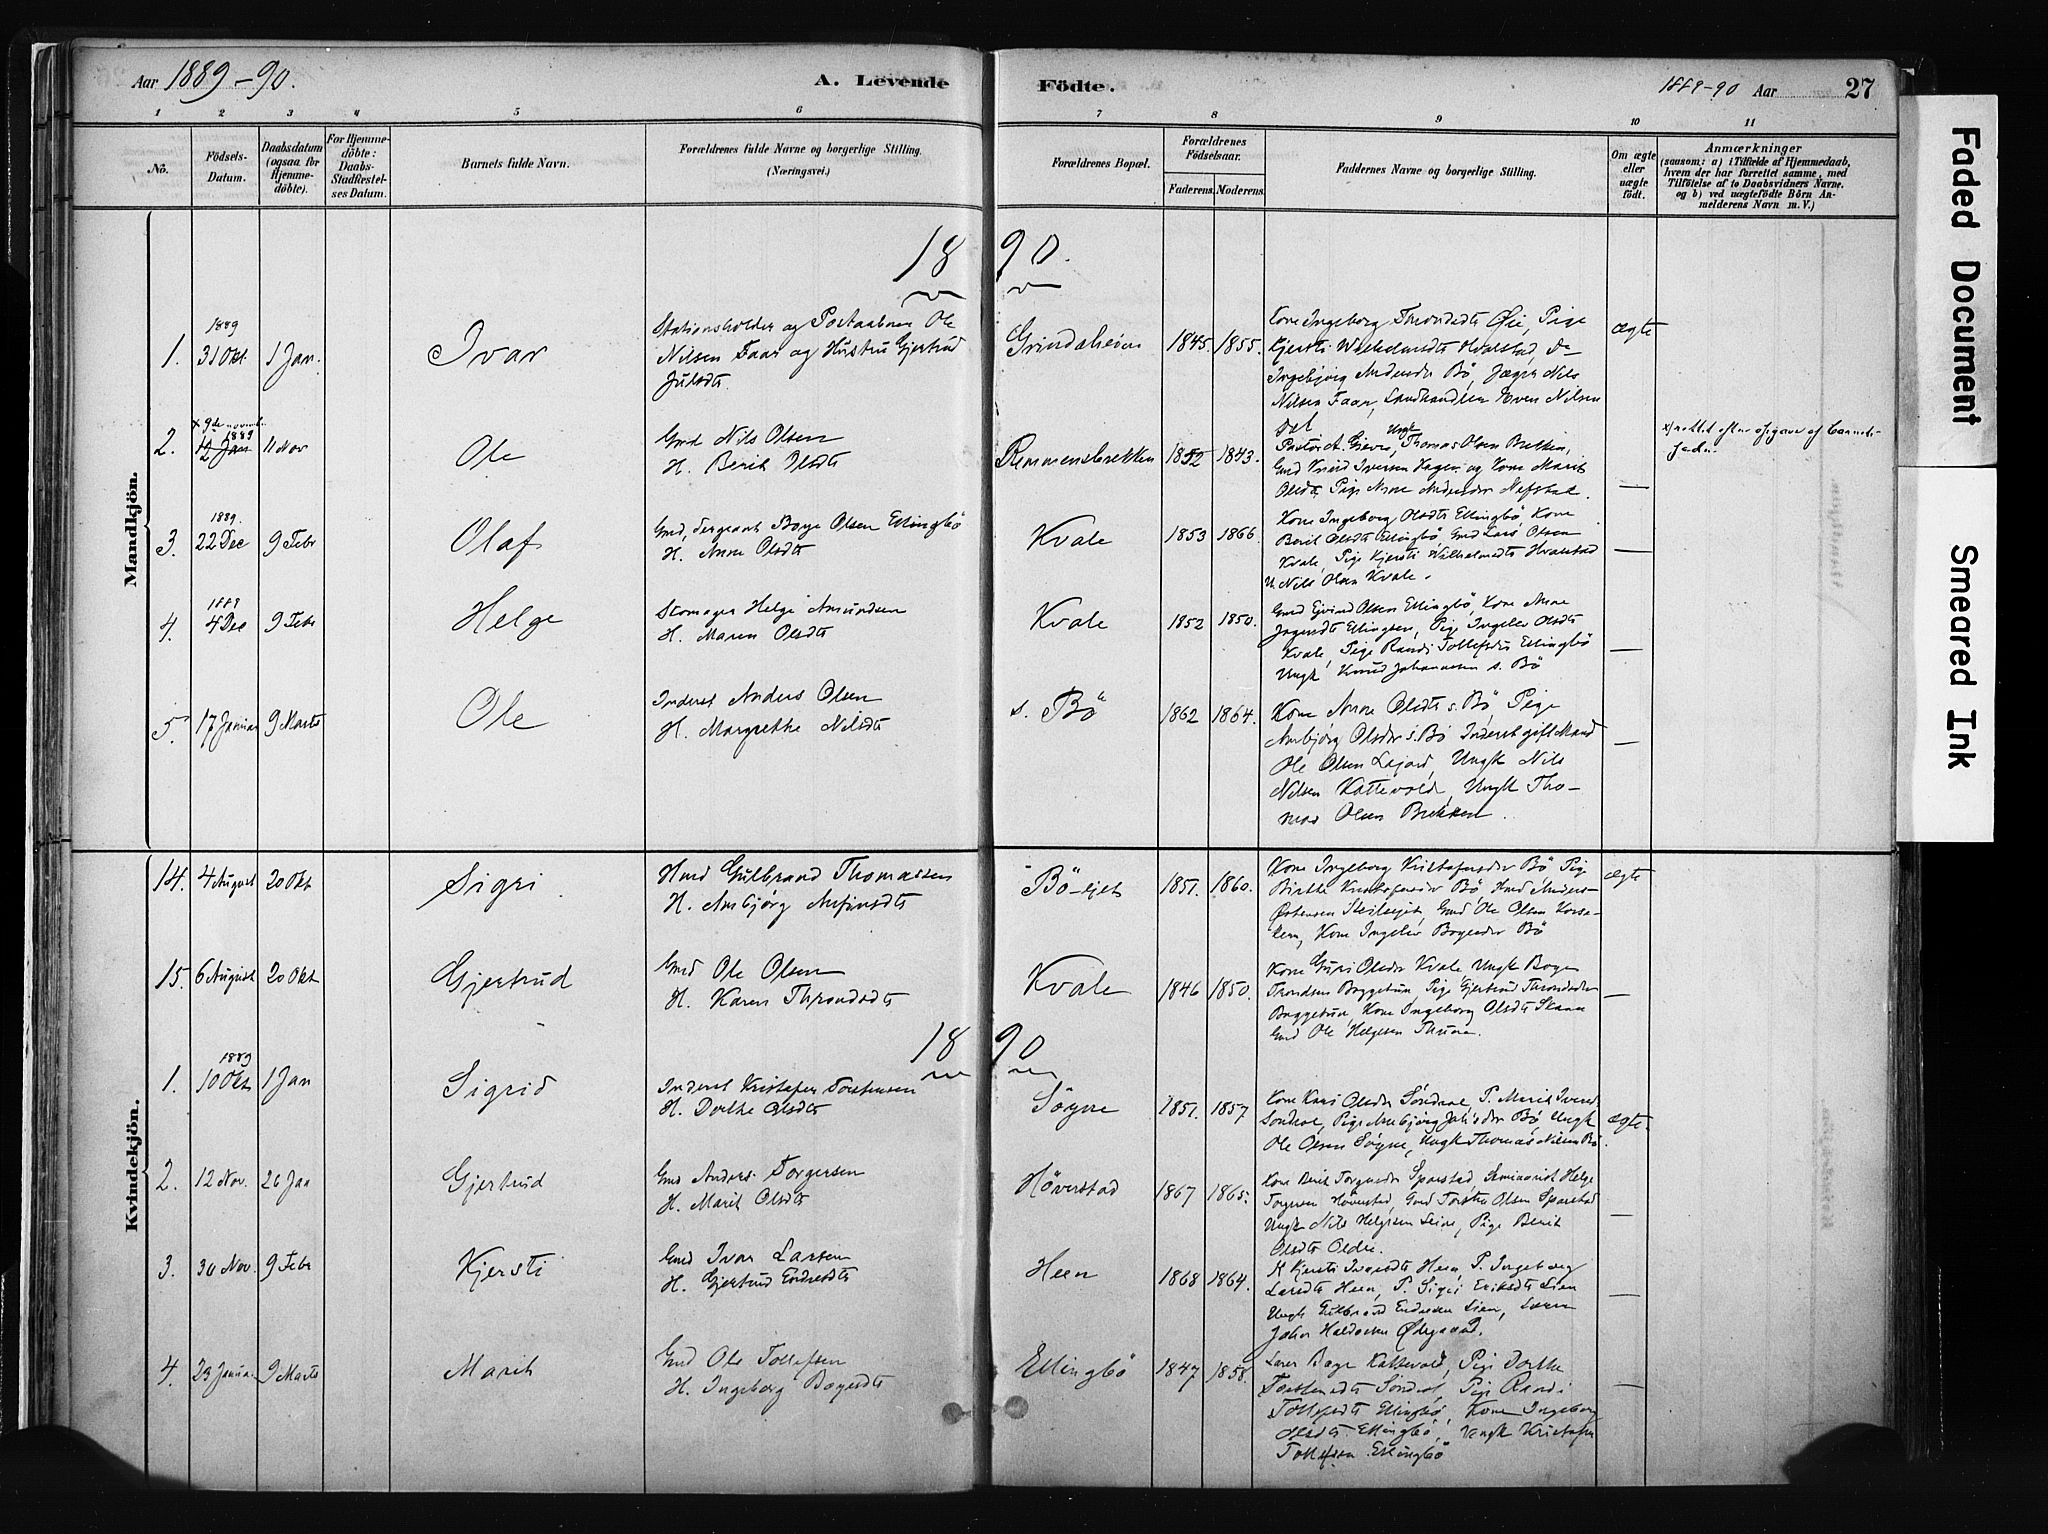 Aar 1889-90.
A. Levende
Födte.
1889-90 Aar
27
1 2 3 4 5 6 7 8 9 10 11
No.
Födsels-Datum.
Daabsdatum (ogsaa for Hjemmedöbte).
For Hjemmedöbte: Daabs-Stadfæstelses Datum.
Barnets fulde Navn.
Forældrenes fulde Navne og borgerlige Stilling. (Næringsvei.)
Forældrenes Bopæl.
Forældrenes Födselsaar.
Faderens. Moderens.
Faddernes Navne og borgerlige Stilling.
Om ægte eller uægte födt.
Anmærkninger
(saasom: a) i Tilfælde af Hjemmedaab, hvem der har forrettet samme, med Tilföielse af to Daabsvidners Navne, og b) ved uægtefödte Börn Anmelderens Navn m. V.)
Mandkjön.
1890.
1. 1889 31 Okt 1 Jan. Ivar
Stationsholder og Postaabner Ole
Nilsen Faar og Hustru Gjertrud
Julsdtr
Grindaheim 1845. 1855.
Kone Ingeborg Throndsdtr Øie, Pige
Kjersti Wilhelmsdtr Hvalstad, Do
Ingebjörg Andersdr Bö, Jæger Nils
Nilsen Faar, Landhandler Even Nilsen
ægte
2. x 9de novembr 1889 12 Jan 11 Nov Ole
Gmd Nils Olsen
H. Berit Olsdtr
Remmensbrekken 1852 1843.
Pastor A. Ungk Thomas Olsen Brekken,
Gmd Knud Iversen Hagen og Kone Marit
Olsdr, Pige Anne Andersdr Nefstad.
—
x) rettet efter opgave af barnets
fader.
3. 1889. 22 Dec 9 Febr Olaf
Gmd, Sergeant Boye Olsen Ellingbö
H. Anne Olsdtr
Kvale 1853 1866.
Kone Ingeborg Olsdtr Ellingbö, Kone
Berit Olsdtr Ellingbö, Gmd Lars Olsen
Kvale, Pige Kjersti Wilhelmsdtr Hvalstad
U. Nils Olsen Kvale.
—
4. 1889 4 Dec 9 Febr Helge
Skomager Helge Amundsen
H. Maren Olsdtr
Kvale 1852 1850.
Gmd Eivind Olsen Ellingbö, Kone Anne
Ellingbö, Pige Ingelev Olsdtr
Kvale, Pige Randi Tollefsdtr Ellingbö
Ungk Knud Johannesen s. Bö
—
5. 17 Januar 9 Marts Ole
Inderst Anders Olsen
H. Margrethe Nilsdtr
s. Bö 1862 1864.
Kone Anne Olsdtr s. Bö Pige
Ambjörg Olsdr s. Bö Inderst gift Mand
Ole Olsen, Ungk Nils
Nilsen Kattevold, Ungk Tho-
mas Olsen Brekken.
—
Kvindekjön.
14. 4 August 20 Okt Sigri
Hmd Gulbrand Thomassen
H. Ambjörg Anfinsdtr
Bö-ejet 1851. 1860.
Kone Ingeborg Kristofersdr Bö Pige
Birthe Kristofersdr Bö Hmd Anders
Østensen, Gmd Ole Olsen
Kone Ingelev Boyesdr Bö
ægte
15. 6 August 20 Okt Gjertrud
Gmd Ole Olsen
H. Karen Throndsdtr
Kvale 1846 1850.
Kone Guri Olsdr Kvale Ungk Boye
Throndsen Baggetun, Pige Gjertrud Throndsdr
Baggetun, Kone Ingeborg Olsdtr
Gmd Ole Helgesen Thune.
—
1890
1. 1889 10 Okt 1 Jan Sigrid
Inderst Kristofer Torstensen
H. Dorthe Olsdtr
Søgne 1851. 1857
Kone Kari Olsdr Söndrol P. Marit Iversdr
Söndrol, Pige Ambjörg Bö, Ungk
Ole Olsen Søgne, Ungk Thomas Nilsen Bö
ægte.
2. 12 Nov. 26 Jan Gjertrud
Gmd Anders Torgersen
H. Marit Olsdtr
Höverstad 1867 1865.
Kone Berit Torgersdr Sparstad, Seminarist Helge
Torgersen Höverstad, Gmd Torstein Olsen Sparstad
Ungk Nils Helgesen Leine, Pige Berit
Olsdtr
—
3. 30 Nov. 9 Febr Kjersti
Gmd Ivar Larsen
H. Gjertrud Endresdtr
Heen 1868 1864.
K. Kjersti Heen, P. Ingeborg
Larsdtr Heen, P. Sigri Eriksdtr Lien
Ungk Gulbrand Endresen Lien, Lærer
John Haldorsen Ødegaard.
—
4. 23 Januar 9 Marts Marit
Gmd Ole Tollefsen
H. Ingeborg Boyesdtr
Ellingbö 1847 1858.
Lærer Boye Kattevold, Pige Dorthe
Torstensdtr Söndrol, Pige Randi
Tollefsdtr Ellingbö, Kone Ingeborg
Olsdtr Ellingbö, Ungk Kristofer
Tollefsen Ellingbö
—
Faded Document
Smeared Ink